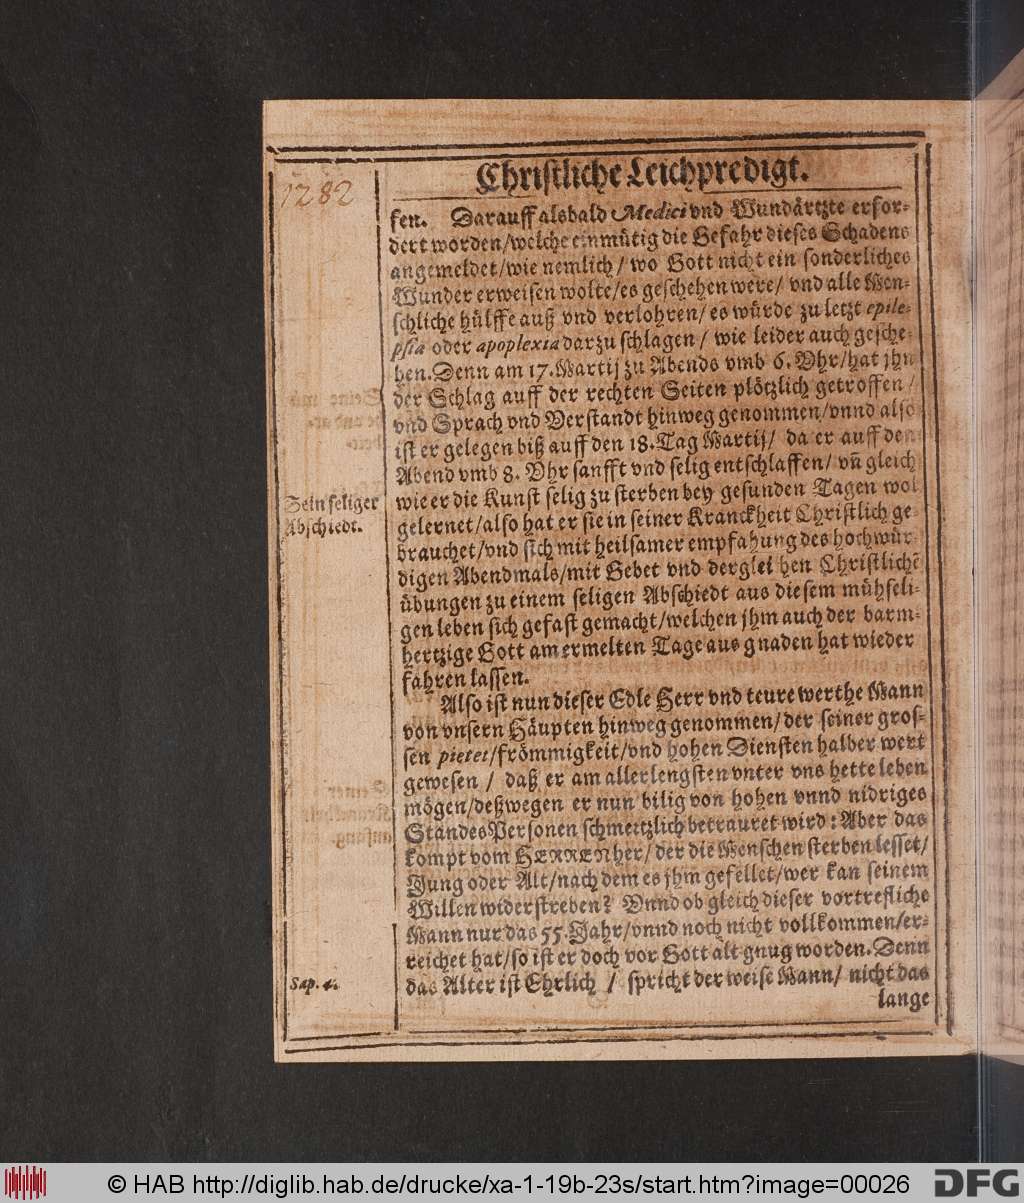 1282
Christliche Leichpredigt.
fen. Darauff alsbald Medici vnd Wundärtzte erfor-
dert worden/welche einmütig die Gefahr dieses Schadens
angemeldet/wie nemlich/ wo Gott nicht ein sonderliches
Wunder erweisen wolte/es geschehen were/ vnd alle Men-
schliche hülffe auß vnd verlohren/ es würde zu letzt epile-
psia oder apoplexia darzu schlagen/ wie leider auch gesche-
hen. Denn am 17. Martij zu Abends vmb 6. Vhr/hat jhn
der Schlag auff der rechten Seiten plötzlich getroffen/
vnd Sprach vnd Verstandt hinweg genommen/vnnd also
ist er gelegen biß auff den 18. Tag Martij/ da er auff den
Abend vmb 8. Vhr sanfft vnd selig entschlaffen/ vñ gleich
Sein seliger
Abschiedt.
wie er die Kunst selig zu sterben bey gesunden Tagen wol
gelernet/also hat er sie in seiner Kranckheit Christlich ge-
brauchet/vnd sich mit heilsamer empfahung des hochwür-
digen Abendmals/mit Gebet vnd derglei hen Christlichẽ
übungen zu einem seligen Abschiedt aus diesem mühseli-
gen leben sich gefast gemacht/welchen jhm auch der barm-
hertzige Gott am ermelten Tage aus gnaden hat wieder
fahren lassen.
Also ist nun dieser Edle Herr vnd teure werthe Mann
von vnsern Häupten hinweg genommen/der seiner gros-
sen pietet/frömmigkeit/vnd hohen Diensten halber wert
gewesen / daß er am allerlengsten vnter vns hette leben
mögen/deßwegen er nun bilig von hohen vnnd nidriges
Standes Personen schmertzlich betrauret wird: Aber das
kompt vom HERREN her/ der die Menschen sterben lesset/
Jung oder Alt/nach dem es jhm gefellet/wer kan seinem
Willen widerstreben? Vnnd ob gleich dieser vortrefliche
Mann nur das 55. Jahr/vnnd noch nicht vollkommen/er-
reichet hat/so ist er doch vor Gott alt gnug worden. Denn
Sap. 4.
das Alter ist Ehrlich / spricht der weise Mann/ nicht das
lange
© HAB http://diglib.hab.de/drucke/xa-1-19b-23s/start.htm?image=00026
DFG